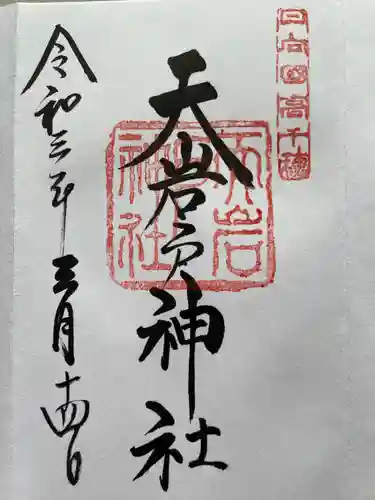 日向國高千穂
天岩戸神社
天岩戸神社
令和三年三月十四日